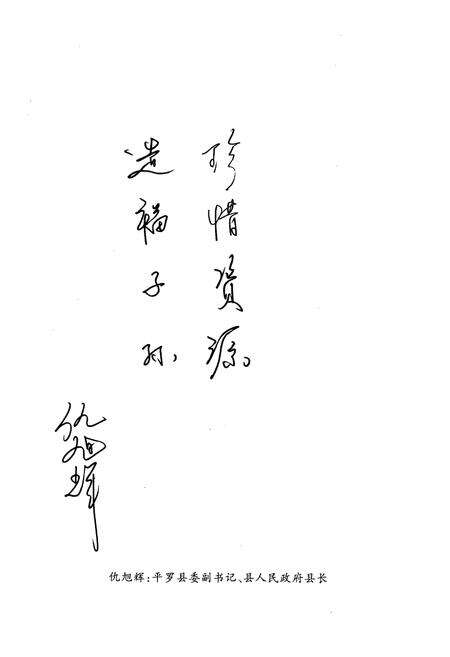 珍惜資源。
造福子孙、
仇旭辉
仇旭辉：平罗县委副书记、县人民政府县长